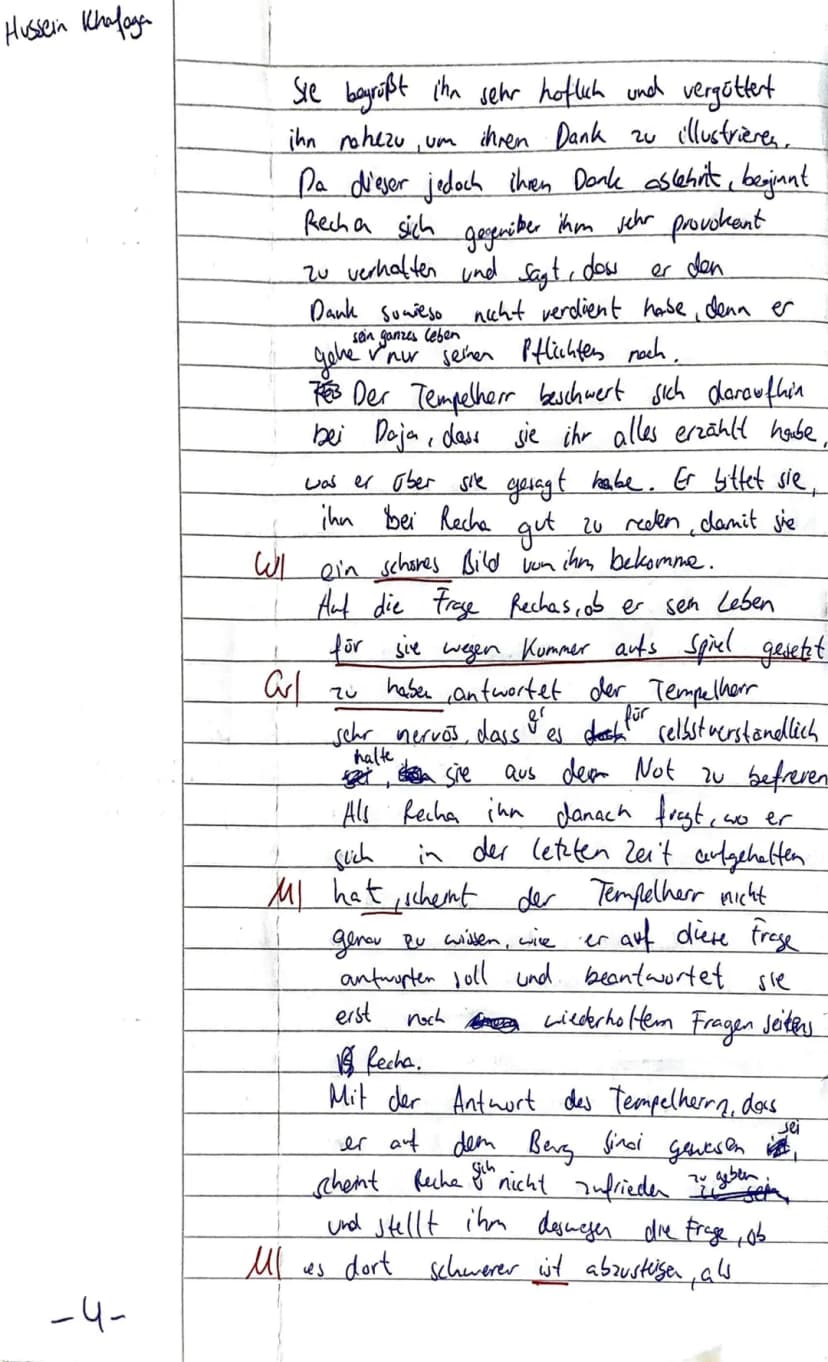 Hussein Khafaga
Sie begrüßt ihn sehr hoflich und vergöttert
ihn nahezu, um ihren Dank zu illustrieren.
Da dieser jedoch ihren Dank ablehnt, beginnt
Recha sich gegenüber ihm sehr provokant
zu verhalten und sagt, dass er den
Dank sowieso nicht verdient habe, denn er
sein ganzes Leben
gehe nur seinen Pflichten nach.
Der Tempelherr beschwert sich daraufhin
bei Daja, dass sie ihr alles erzählt habe,
was er über sie gesagt habe. Er bittet sie,
ihn bei Recha gut zu reden, damit sie
W| ein schönes Bild von ihm bekomme.
Auf die Frage Rechas, ob er sein Leben
für sie wegen Kummer aufs Spiel gesetzt
Gr| zu haben, antwortet der Tempelherr
er für
sehr nervös, dass es selbstverständlich
halte
, sie aus dem Not zu befreien
Als Recha ihn danach fragt, wo er
sich in der letzten Zeit aufgehalten
M| hat, scheint der Tempelherr nicht
genau zu wissen, wie er auf diese Frage
antworten soll und beantwortet sie
erst nach wiederholtem Fragen seitens
Recha.
Mit der Antwort des Tempelherrn, dass
sei
er auf dem Berg Sinai gewesen ,
sich zu geben
scheint Recha nicht zufrieden
und stellt ihm deswegen die Frage, ob
M| es dort schwerer ist abzusteigen, als
-4-